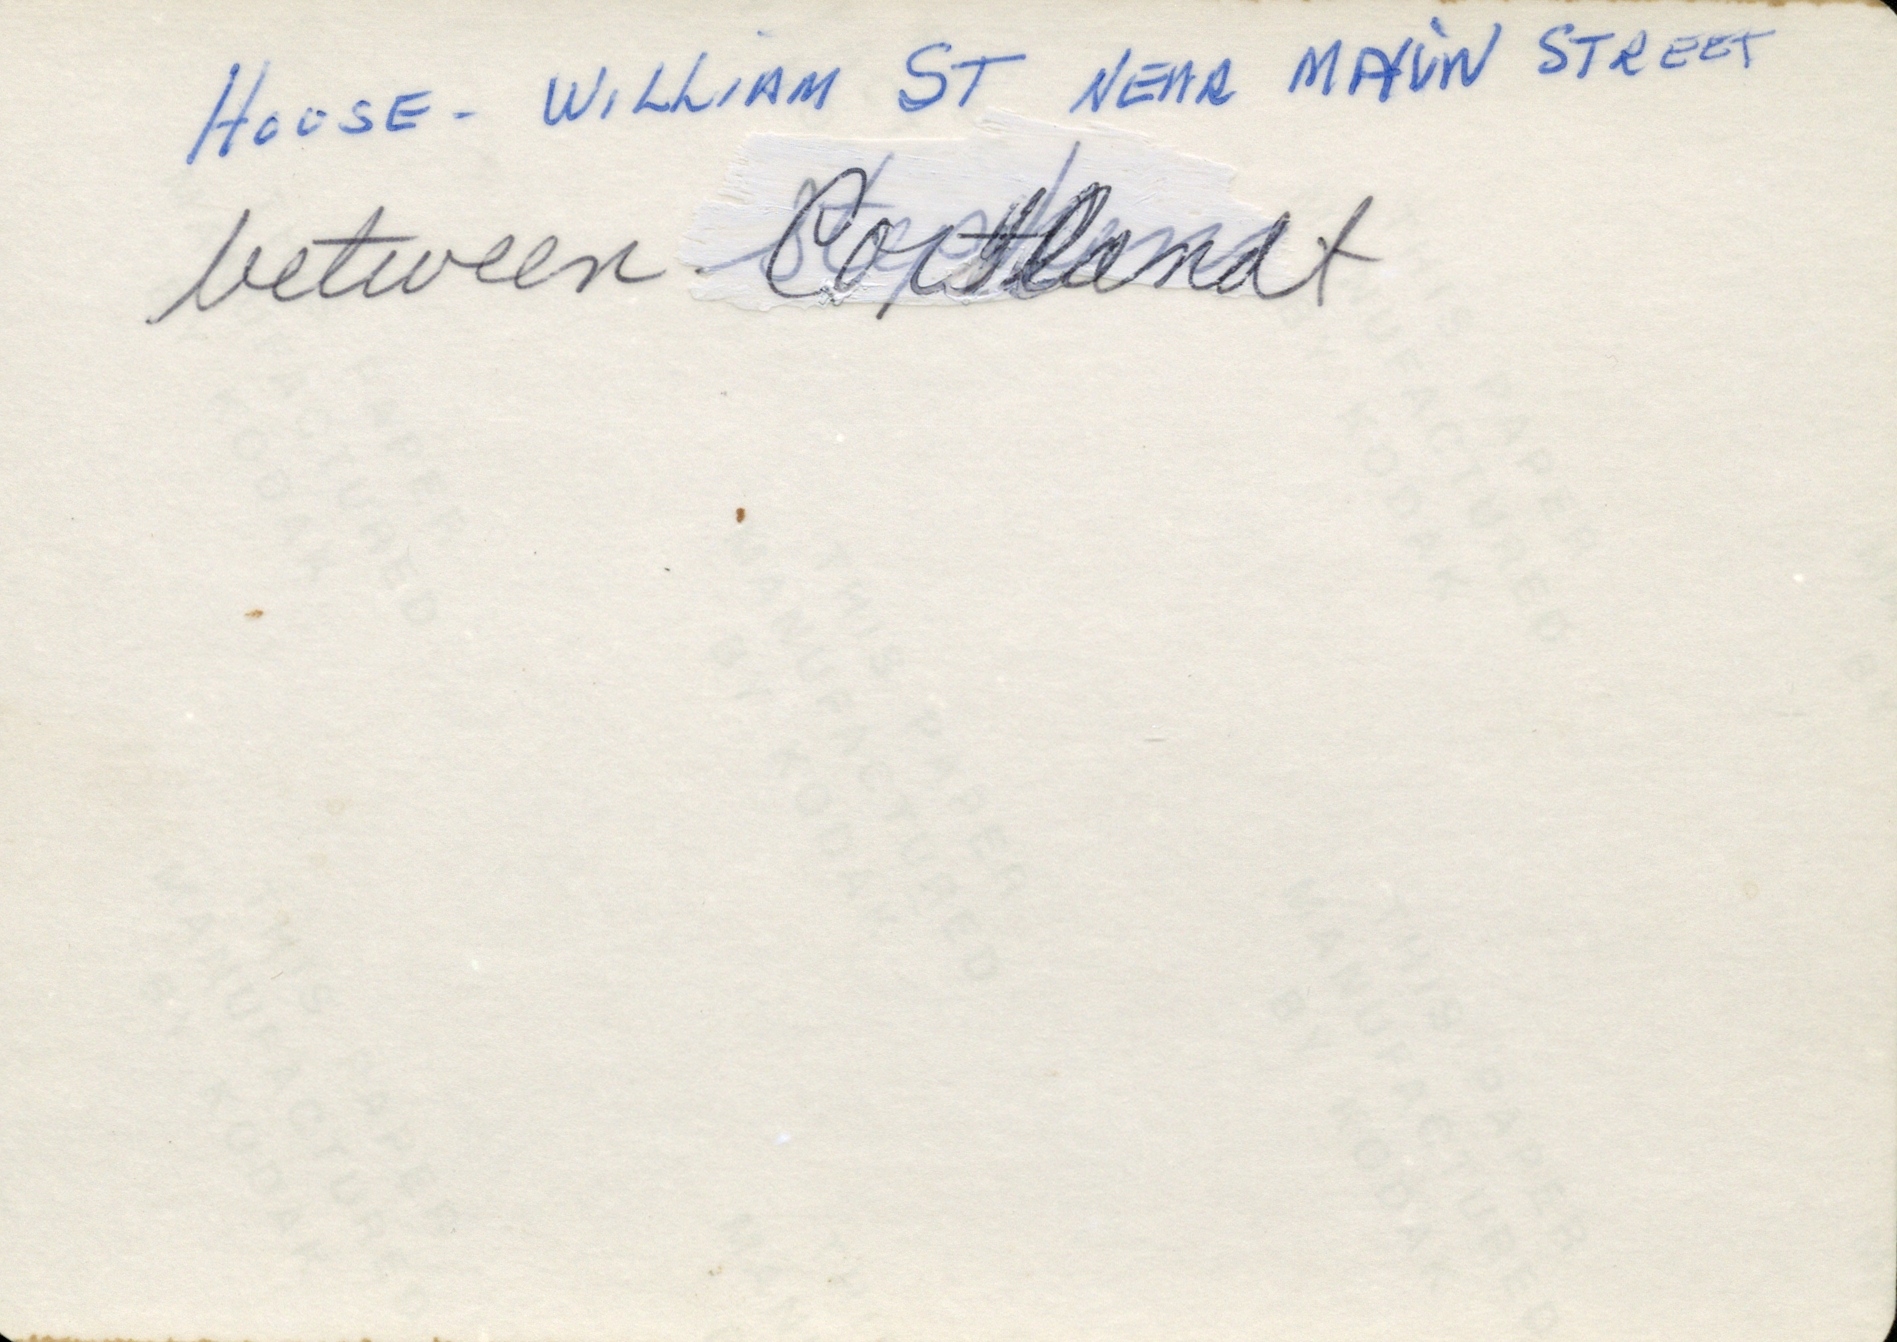 HOUSE - WILLIAM ST NEAR MAIN STREET
between Cortlandt
THIS PAPER
MANUFACTURED
BY KODAK
THIS PAPER
MANUFACTURED
BY KODAK
THIS PAPER
MANUFACTURED
BY KODAK
THIS PAPER
MANUFACTURED
BY KODAK
THIS PAPER
MANUFACTURED
BY KODAK